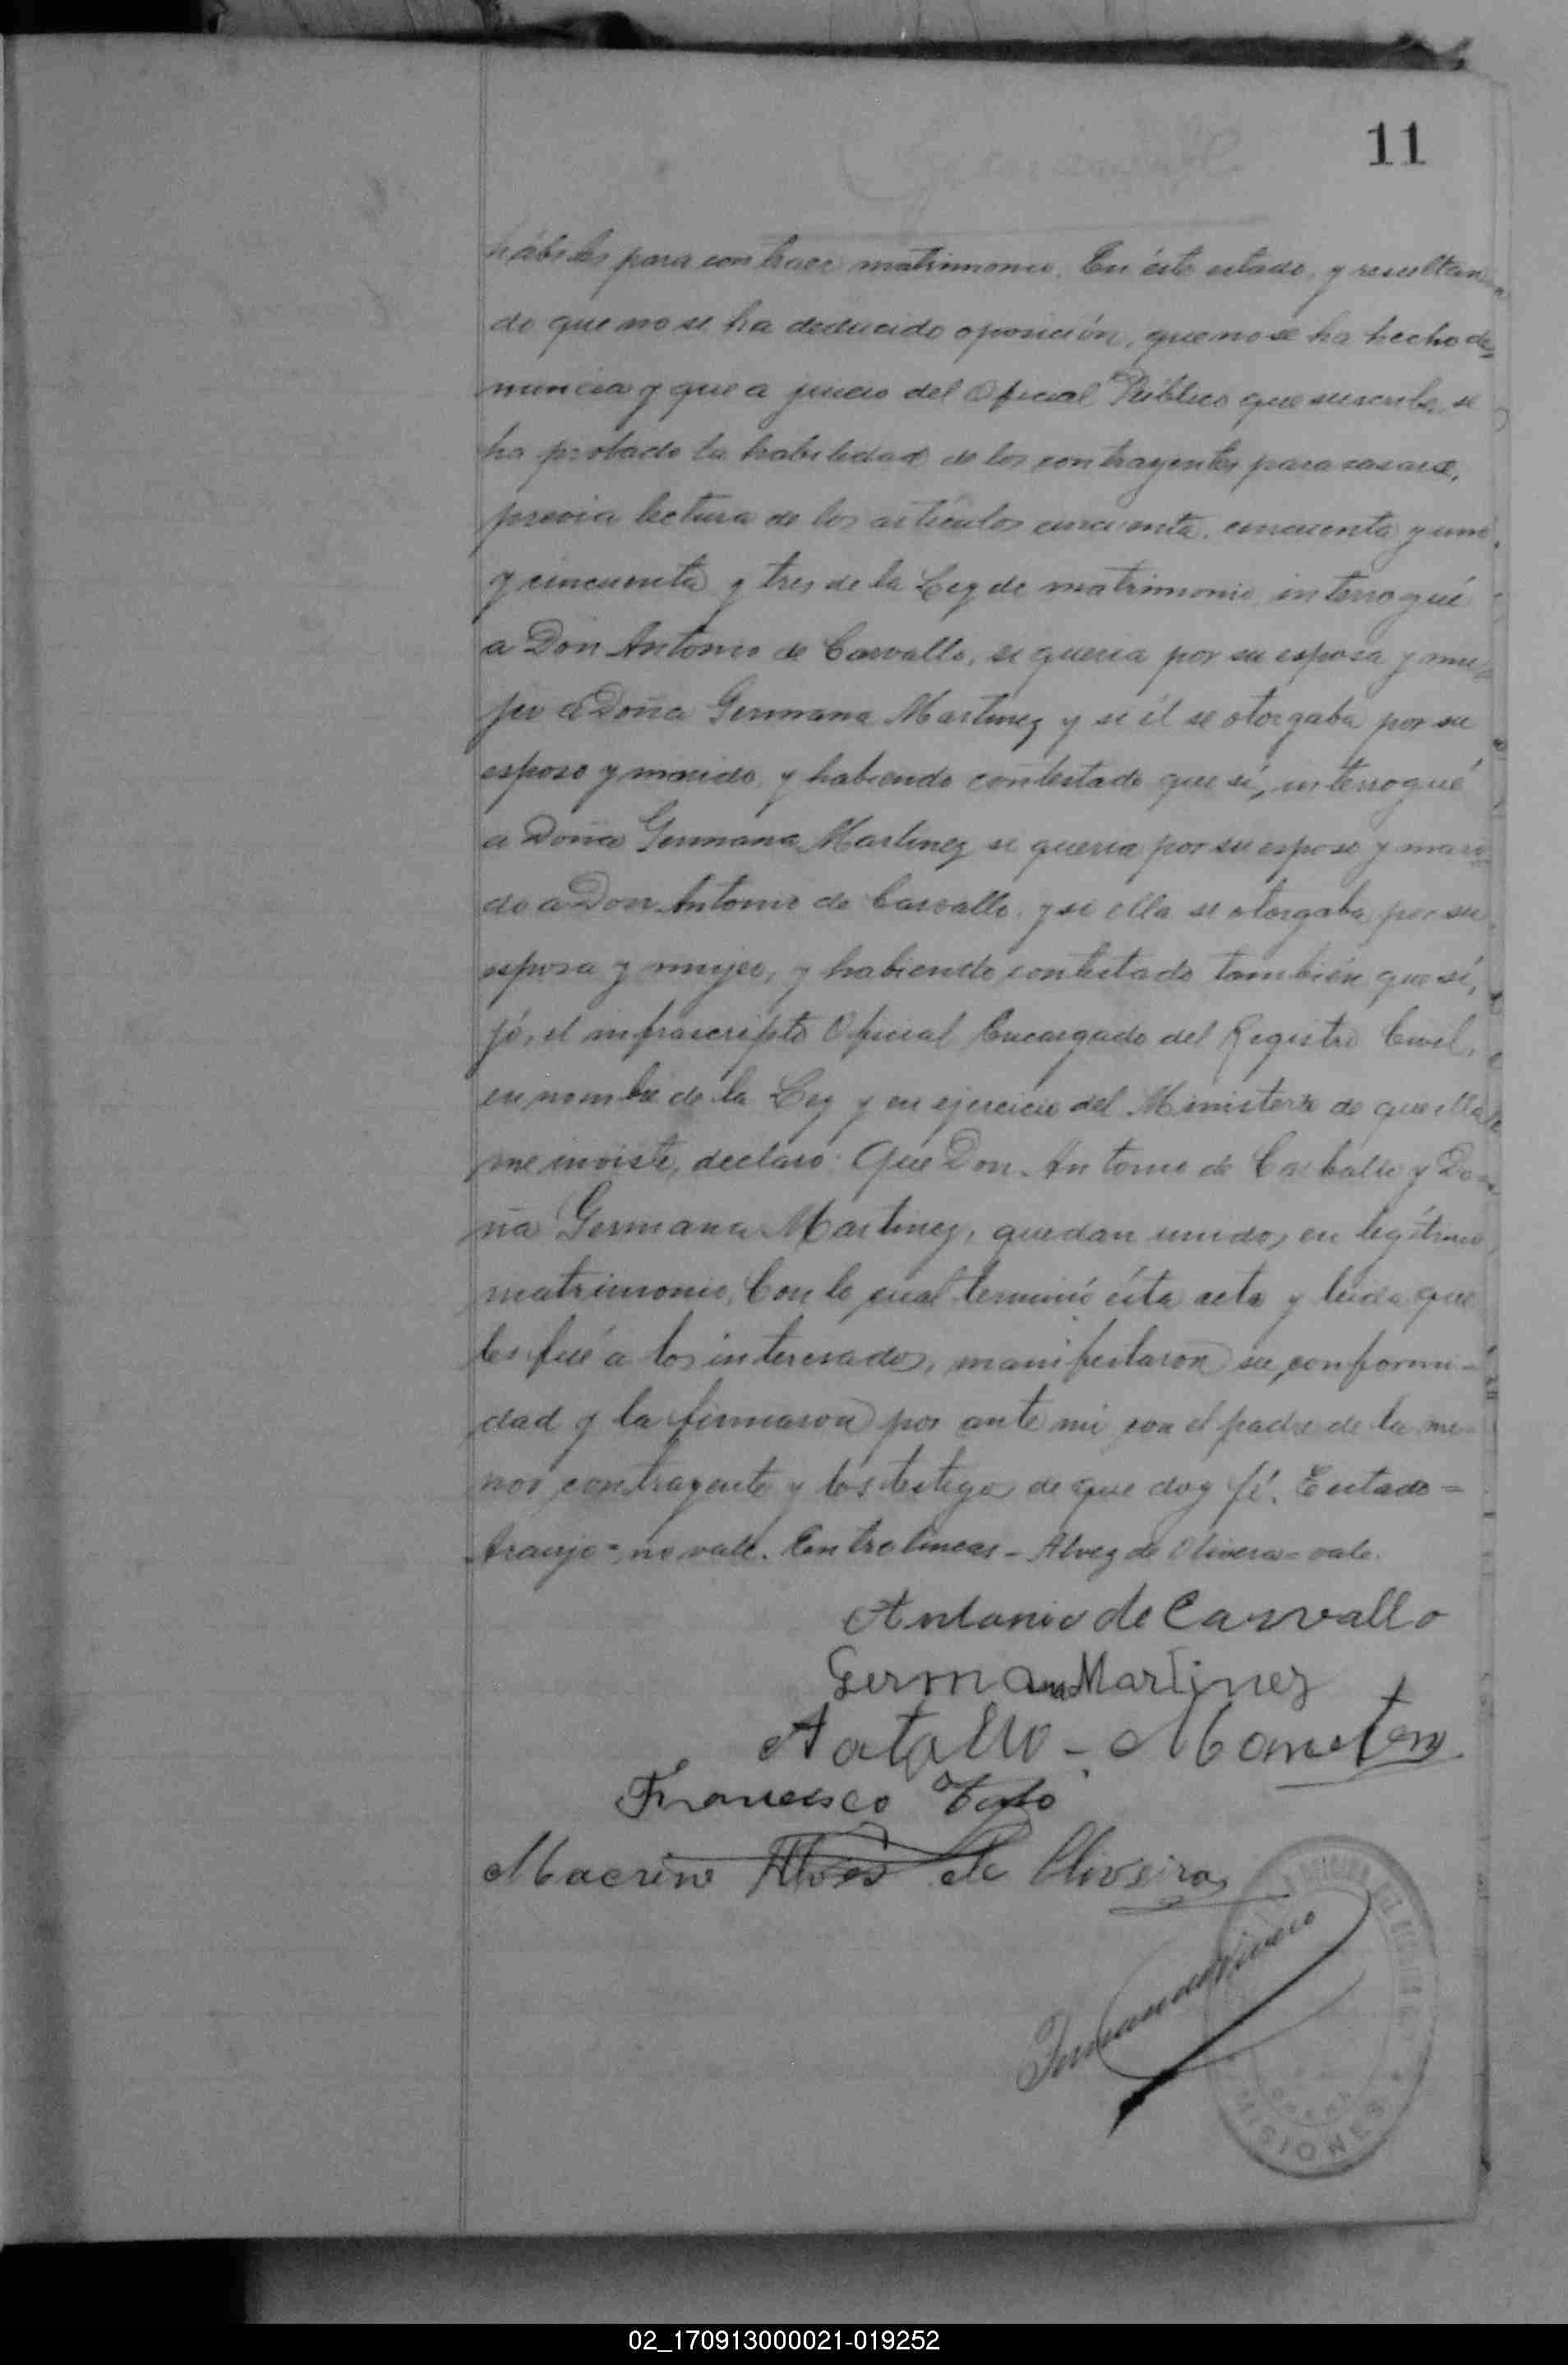 11
hábiles para contraer matrimonio. En éste estado, y resultan
do que no se ha deducido oposición, que no se ha hecho de
nuncia y que a juicio del Oficial Público que suscribe, se
ha probado la habilidad de los contrayentes para casarse,
previa lectura de los artículos cincuenta, cincuenta y uno
y cincuenta y tres de la Ley de matrimonio, interrogué
a Don Antonio de Carvallo, si queria por su esposa y mu
jer a Doña Germana Martinez y si él se otorgaba por su
esposo y marido, y habiendo contestado que sí, interrogué
a Doña Germana Martinez si queria por su esposo y mari
do a Don Antonio de Carvallo, y si ella se otorgaba por su
esposa y mujer, y habiendo contestado también que sí,
yó, el infrascripto Oficial Encargado del Registro Civil,
en nombre de la Ley y en ejercicio del Ministerio de que ella
me inviste, declaro: Que Don Antonio de Carballo y Do-
ña Germana Martinez, quedan unidos en legítimo
matrimonio. Con lo cual terminó ésta acta y leida que
les fué a los interesados, manifestaron su conformi-
dad y la firmaron por ante mi con el padre de la me-
nor contrayente y los testigos de que doy fé. Entado =
Araujo = no vale. Entrelineas - Alvez de Olivera = vale.
Antonio de Carvallo
Germana Martinez
Francisco
Macrino Alves de Oliveira
MISIONES
02_170913000021-019252